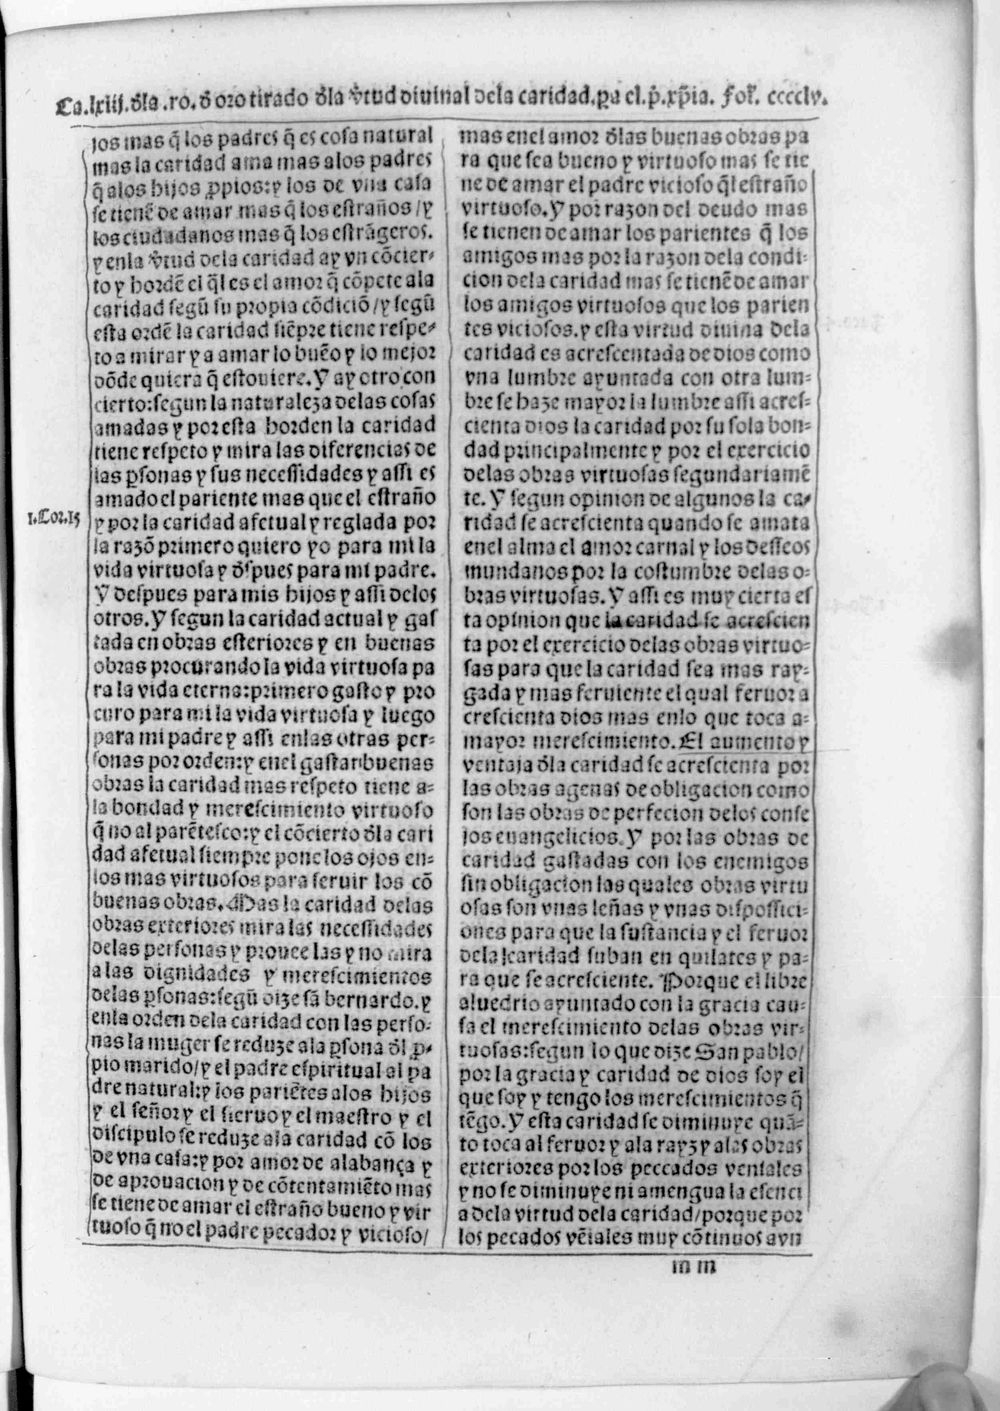 Ca.lxiij.d̄la.ro.d̄ oro tirado d̄la v̄tud diuinal dela caridad.pa el.p̄.xp̄ia. Fol. cccclv.
jos mas q̄ los padres q̄ es cosa natural
mas la caridad ama mas alos padres
q̄ alos hijos ꝓpios:y los de vna casa
se tienē de amar mas q̄ los estraños/y
los ciudadanos mas q̄ los estrāgeros.
y enla v̄tud dela caridad ay vn cōcier-
to y hordē el q̄l es el amor q̄ cōpete ala
caridad segū su propia cōdiciō/y segū
esta ordē la caridad siēpre tiene respe-
to a mirar y a amar lo buēo y lo mejor
dōde quiera q̄ estouiere. Y ay otro con
cierto:segun la naturaleza delas cosas
amadas y por esta horden la caridad
tiene respeto y mira las diferencias de
las ꝑsonas y sus necessidades y assi es
amado el pariente mas que el estraño
1.Cor.15
y por la caridad afetual y reglada por
la razō primero quiero yo para mi la
vida virtuosa y d̄spues para mi padre.
Y despues para mis hijos y assi delos
otros. Y segun la caridad actual y gas
tada en obras esteriores y en buenas
obras procurando la vida virtuosa pa
ra la vida eterna:primero gasto y pro
curo para mi la vida virtuosa y luego
para mi padre y assi enlas otras per-
sonas por orden:y enel gastar buenas
obras la caridad mas respeto tiene a-
la bondad y merescimiento virtuoso
q̄ no al parētesco:y el cōcierto d̄la cari
dad afetual siempre pone los ojos en-
los mas virtuosos para seruir los cō
buenas obras. Mas la caridad delas
obras exteriores mira las necessidades
delas personas y prouee las y no mira
a las dignidades y merescimientos
delas ꝑsonas:segū dize sā bernardo.y
enla orden dela caridad con las perso-
nas la muger se reduze ala ꝑsona d̄l ꝓ-
pio marido/y el padre espiritual al pa
dre natural:y los pariētes alos hijos
y el señor y el sieruo y el maestro y el
discipulo se reduze ala caridad cō los
de vna casa:y por amor de alabança y
de aprouacion y de cōtentamiēto mas
se tiene de amar el estraño bueno y vir
tuoso q̄ no el padre pecador y vicioso/
mas enel amor d̄las buenas obras pa
ra que sea bueno y virtuoso mas se tie
ne de amar el padre vicioso q̄l estraño
virtuoso. Y por razon del deudo mas
se tienen de amar los parientes q̄ los
amigos mas por la razon dela condi-
cion dela caridad mas se tienē de amar
los amigos virtuosos que los parien
tes viciosos. y esta virtud diuina dela
caridad es acrescentada de dios como
vna lumbre ayuntada con otra lum-
bre se haze mayor la lumbre assi acres-
cienta dios la caridad por su sola bon-
dad principalmente y por el exercicio
delas obras virtuosas segundariamē
te. Y segun opinion de algunos la ca-
ridad se acrescienta quando se amata
enel alma el amor carnal y los desseos
mundanos por la costumbre delas o-
bras virtuosas. Y assi es muy cierta es
ta opinion que la caridad se acrescien
ta por el exercicio delas obras virtuo-
sas para que la caridad sea mas ray-
gada y mas feruiente el qual feruor a
crescienta dios mas enlo que toca a-
mayor merescimiento. El aumento y
ventaja d̄la caridad se acrescienta por
las obras agenas de obligacion como
son las obras de perfecion delos conse
jos euangelicios. Y por las obras de
caridad gastadas con los enemigos
sin obligacion las quales obras virtu
osas son vnas leñas y vnas dispossici-
ones para que la sustancia y el feruor
dela caridad suban en quilates y pa-
ra que se acresciente. Porque el libre
aluedrio ayuntado con la gracia cau-
sa el merescimiento delas obras vir-
tuosas:segun lo que dize San pablo/
por la gracia y caridad de dios soy el
que soy y tengo los merescimientos q̄
tēgo. Y esta caridad se diminuye quā-
to toca al feruor y ala rayz y alas obras
exteriores por los peccados veniales
y no se diminuye ni amengua la esenci
a dela virtud dela caridad/porque por
los pecados vēiales muy cōtinuos avn
m m